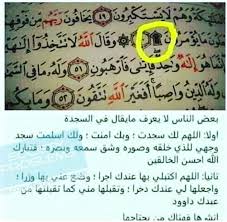 وهم لا يستكبرون ٤٩ يخافون ربهم من فوقهم
وقال الله لا تتخذوا
إله واحد فإيي فارهبون ٥١ وله ما في
الدين واصبا أفغير الله تتقون ٥٢ وما بكم
بعض الناس لا يعرف مايقال في السجدة
اولا: اللهم لك سجدت ؛ وبك امنت ؛ ولك اسلمت سجد
وجهي للذي خلقه وصوره وشق سمعه وبصره ؛ فتبارك
الله احسن الخالقين
ثانيا: اللهم اكتبلي بها عندك اجرا ؛ وضع عني بها وزرا ؛
واجعلها لي عندك ذخرا ؛ وتقبلها مني كما تقبلتها من
عبدك داوود
انشرها فهناك من يحتاجها